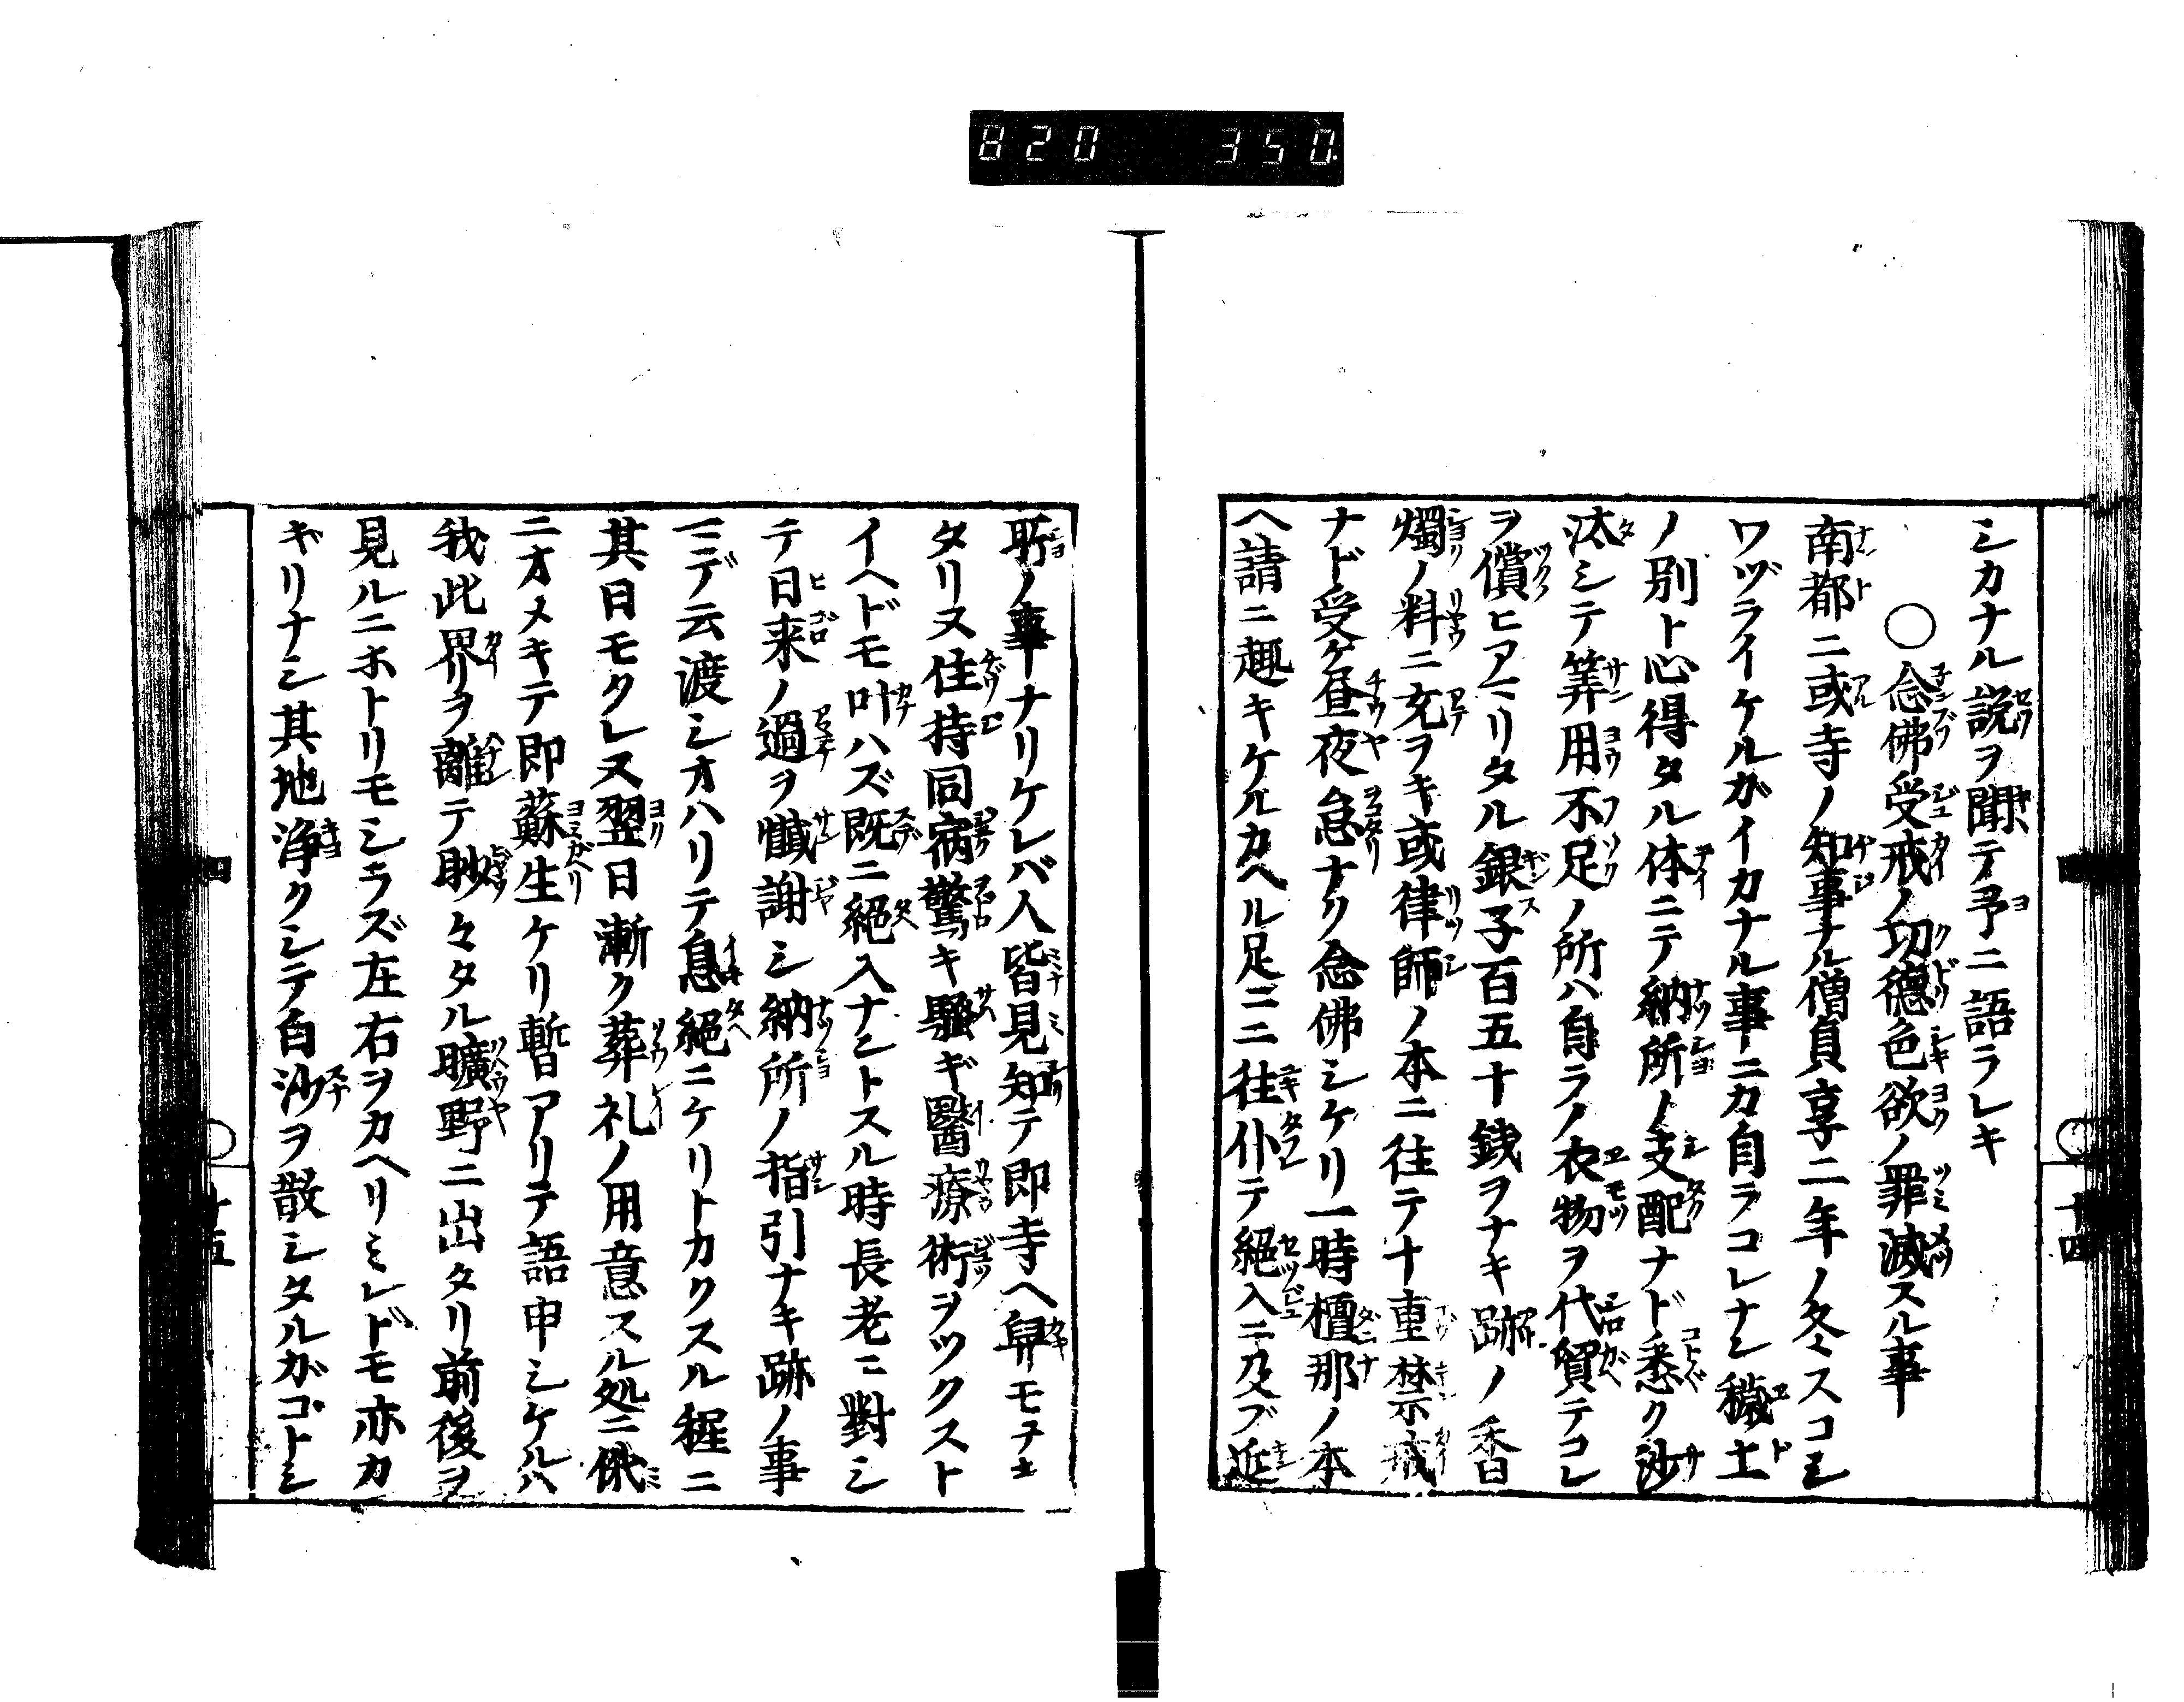 820 350.
シカナル説ヲ聞テ予ニ語ラレキ
○念佛受戒ノ切德色欲ノ罪滅スル事
南都ニ或寺ノ知事ナル僧貞享二年ノ冬スコシ
ワヅライケルガイカナル事ニカ自ラコレナン穢土
ノ別ト心得タル体ニテ納所ノ支配ナド悉ク沙
汰シテ筭用不足ノ所ハ自ラノ衣物ヲ代貿テコレ
ヲ償ヒアマリタル銀子百五十錢ヲナキ跡ノ香
燭ノ料ニ充ヲキ或律師ノ本ニ往テ十重禁戒
ナド受ケ昼夜怠ナク念佛シケリ一時檀那ノ本
ヘ請ニ趣キケルカヘル足ニニ往仆テ絕入ニ及ブ近
十四
所ノ事ナリケレバ人皆見知テ即寺ヘ舁モテキ
タリヌ住持同宿驚キ騒ギ醫療術ヲツクスト
イヘドモ叶ハズ既ニ絕入ナントスル時長老ニ對シ
テ日来ノ過ヲ懺謝シ納所ノ指引ナキ跡ノ事
マデ云渡シオハリテ息絕ニケリトカクスル程ニ
其日モクレヌ翌日漸ク葬礼ノ用意スル処ニ俄
ニオメキテ即蘇生ケリ暫アリテ語申シケルハ
我此界ヲ離テ眇々タル曠野ニ出タリ前後ヲ
見ルニホトリモシラズ左右ヲカヘリミレドモ亦カ
ギリナシ其地淨クシテ白沙ヲ散シタルガゴトシ
十五